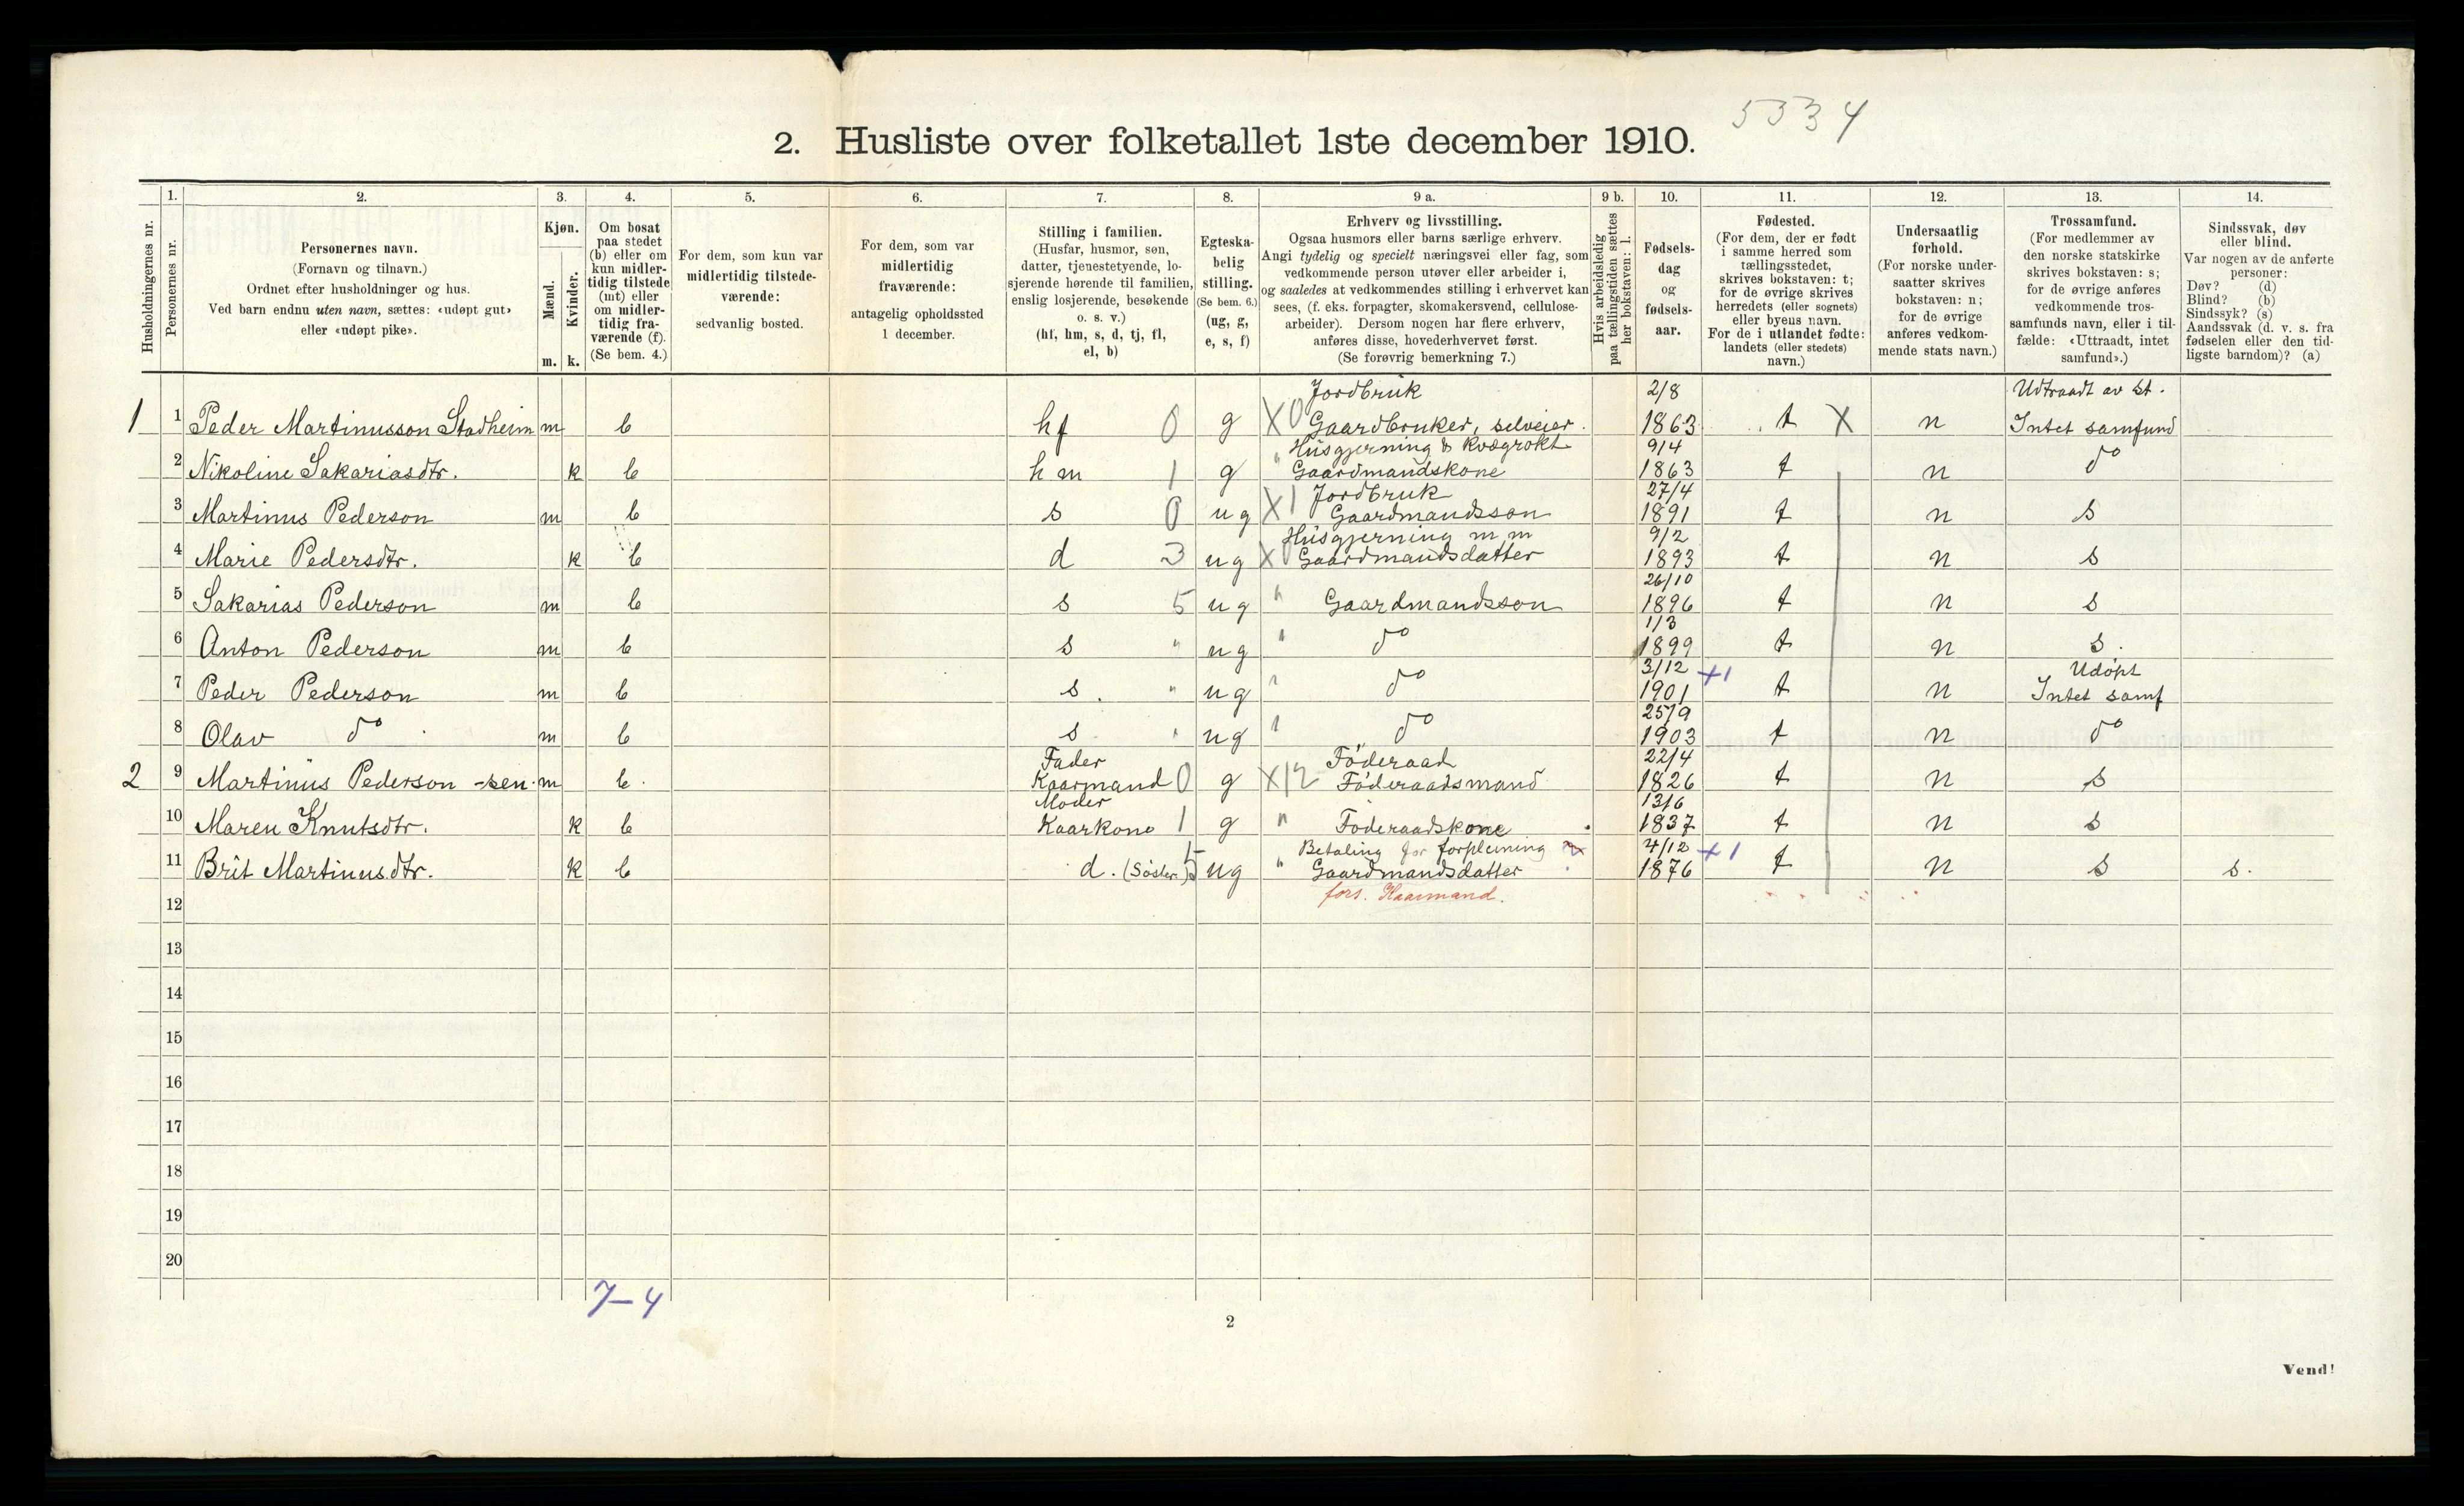 5334
2. Husliste over folketallet 1ste december 1910.
Husholdningernes nr.
1. Personernes nr.
2. Personernes navn. (Fornavn og tilnavn.) Ordnet efter husholdninger og hus. Ved barn endnu uten navn, sættes: «udøpt gut» eller «udøpt pike».
3. Kjøn. Mænd. m. Kvinder. k.
4. Om bosat paa stedet (b) eller om kun midlertidig tilstede (mt) eller om midlertidig fraværende (f). (Se bem. 4.)
5. For dem, som kun var midlertidig tilstedeværende: sedvanlig bosted.
6. For dem, som var midlertidig fraværende: antagelig opholdssted 1 december.
7. Stilling i familien. (Husfar, husmor, søn, datter, tjenestetyende, losjerende hørende til familien, enslig losjerende, besøkende o. s. v.) (hf, hm, s, d, tj, fl, el, b)
8. Egteskabelig stilling. (Se bem. 6.) (ug, g, e, s, f)
9 a. Erhverv og livsstilling. Ogsaa husmors eller barns særlige erhverv. Angi tydelig og specielt næringsvei eller fag, som vedkommende person utøver eller arbeider i, og saaledes at vedkommendes stilling i erhvervet kan sees, (f. eks. forpagter, skomakersvend, cellulosearbeider). Dersom nogen har flere erhverv, anføres disse, hovederhvervet først. (Se forøvrig bemerkning 7.)
9 b. Hvis arbeidsledig paa tællingstiden sættes her bokstaven: l.
10. Fødselsdag og fødselsaar.
11. Fødested. (For dem, der er født i samme herred som tællingsstedet, skrives bokstaven: t; for de øvrige skrives herredets (eller sognets) eller byens navn. For de i utlandet fødte: landets (eller stedets) navn.)
12. Undersaatlig forhold. (For norske undersaatter skrives bokstaven: n; for de øvrige anføres vedkommende stats navn.)
13. Trossamfund. (For medlemmer av den norske statskirke skrives bokstaven: s; for de øvrige anføres vedkommende trossamfunds navn, eller i tilfælde: «Uttraadt, intet samfund».)
14. Sindssvak, døv eller blind. Var nogen av de anførte personer: Døv? (d) Blind? (b) Sindssyk? (s) Aandssvak (d. v. s. fra fødselen eller den tidligste barndom)? (a)
Jordbruk 2/8 Udtraadt av st.
1 1 Peder Martinusson Stadheim m b hf 0 g X0 Gaardbruker, selveier. 1863 t X n Intet samfund
Husgjerning & kvægrøkt 9/4
2 Nikoline Sakariasdtr. k b hm 1 g " Gaardmandskone 1863 t n do
Jordbruk 27/4
3 Martinus Pederson m b s 0 ug X1 Gaardmandsson 1891 t n s
Husgjerning m m 9/2
4 Marie Pedersdtr. k b d 3 ug X Gaardmandsdatter 1893 t n s
26/10
5 Sakarias Pederson m b s 5 ug " Gaardmandsson 1896 t n s
1/3
6 Anton Pederson m b s " ug " do 1899 t n s.
3/12 +1 Udøpt
7 Peder Pederson m b s. " ug " do 1901 t n Intet samf
25/9
8 Olav do m b s " ug " do 1903 t n do
Fader Føderaad 22/4
2 9 Martinus Pederson -sen. m b. Kaarmand 0 g X12 Føderaadsmand 1826 t n s
Moder 13/6
10 Maren Knutsdtr. k b Kaarkone 1 g " Føderaadskone 1837 t n s
Betaling for forpleining 4/12 +1
11 Brit Martinusdtr. k b d. (Søster) 5 ug " Gaardmandsdatter 1876 t n s s.
12 fors. Kaarmand.
13
14
15
16
17
18
19
20
7-4
2
Vend!